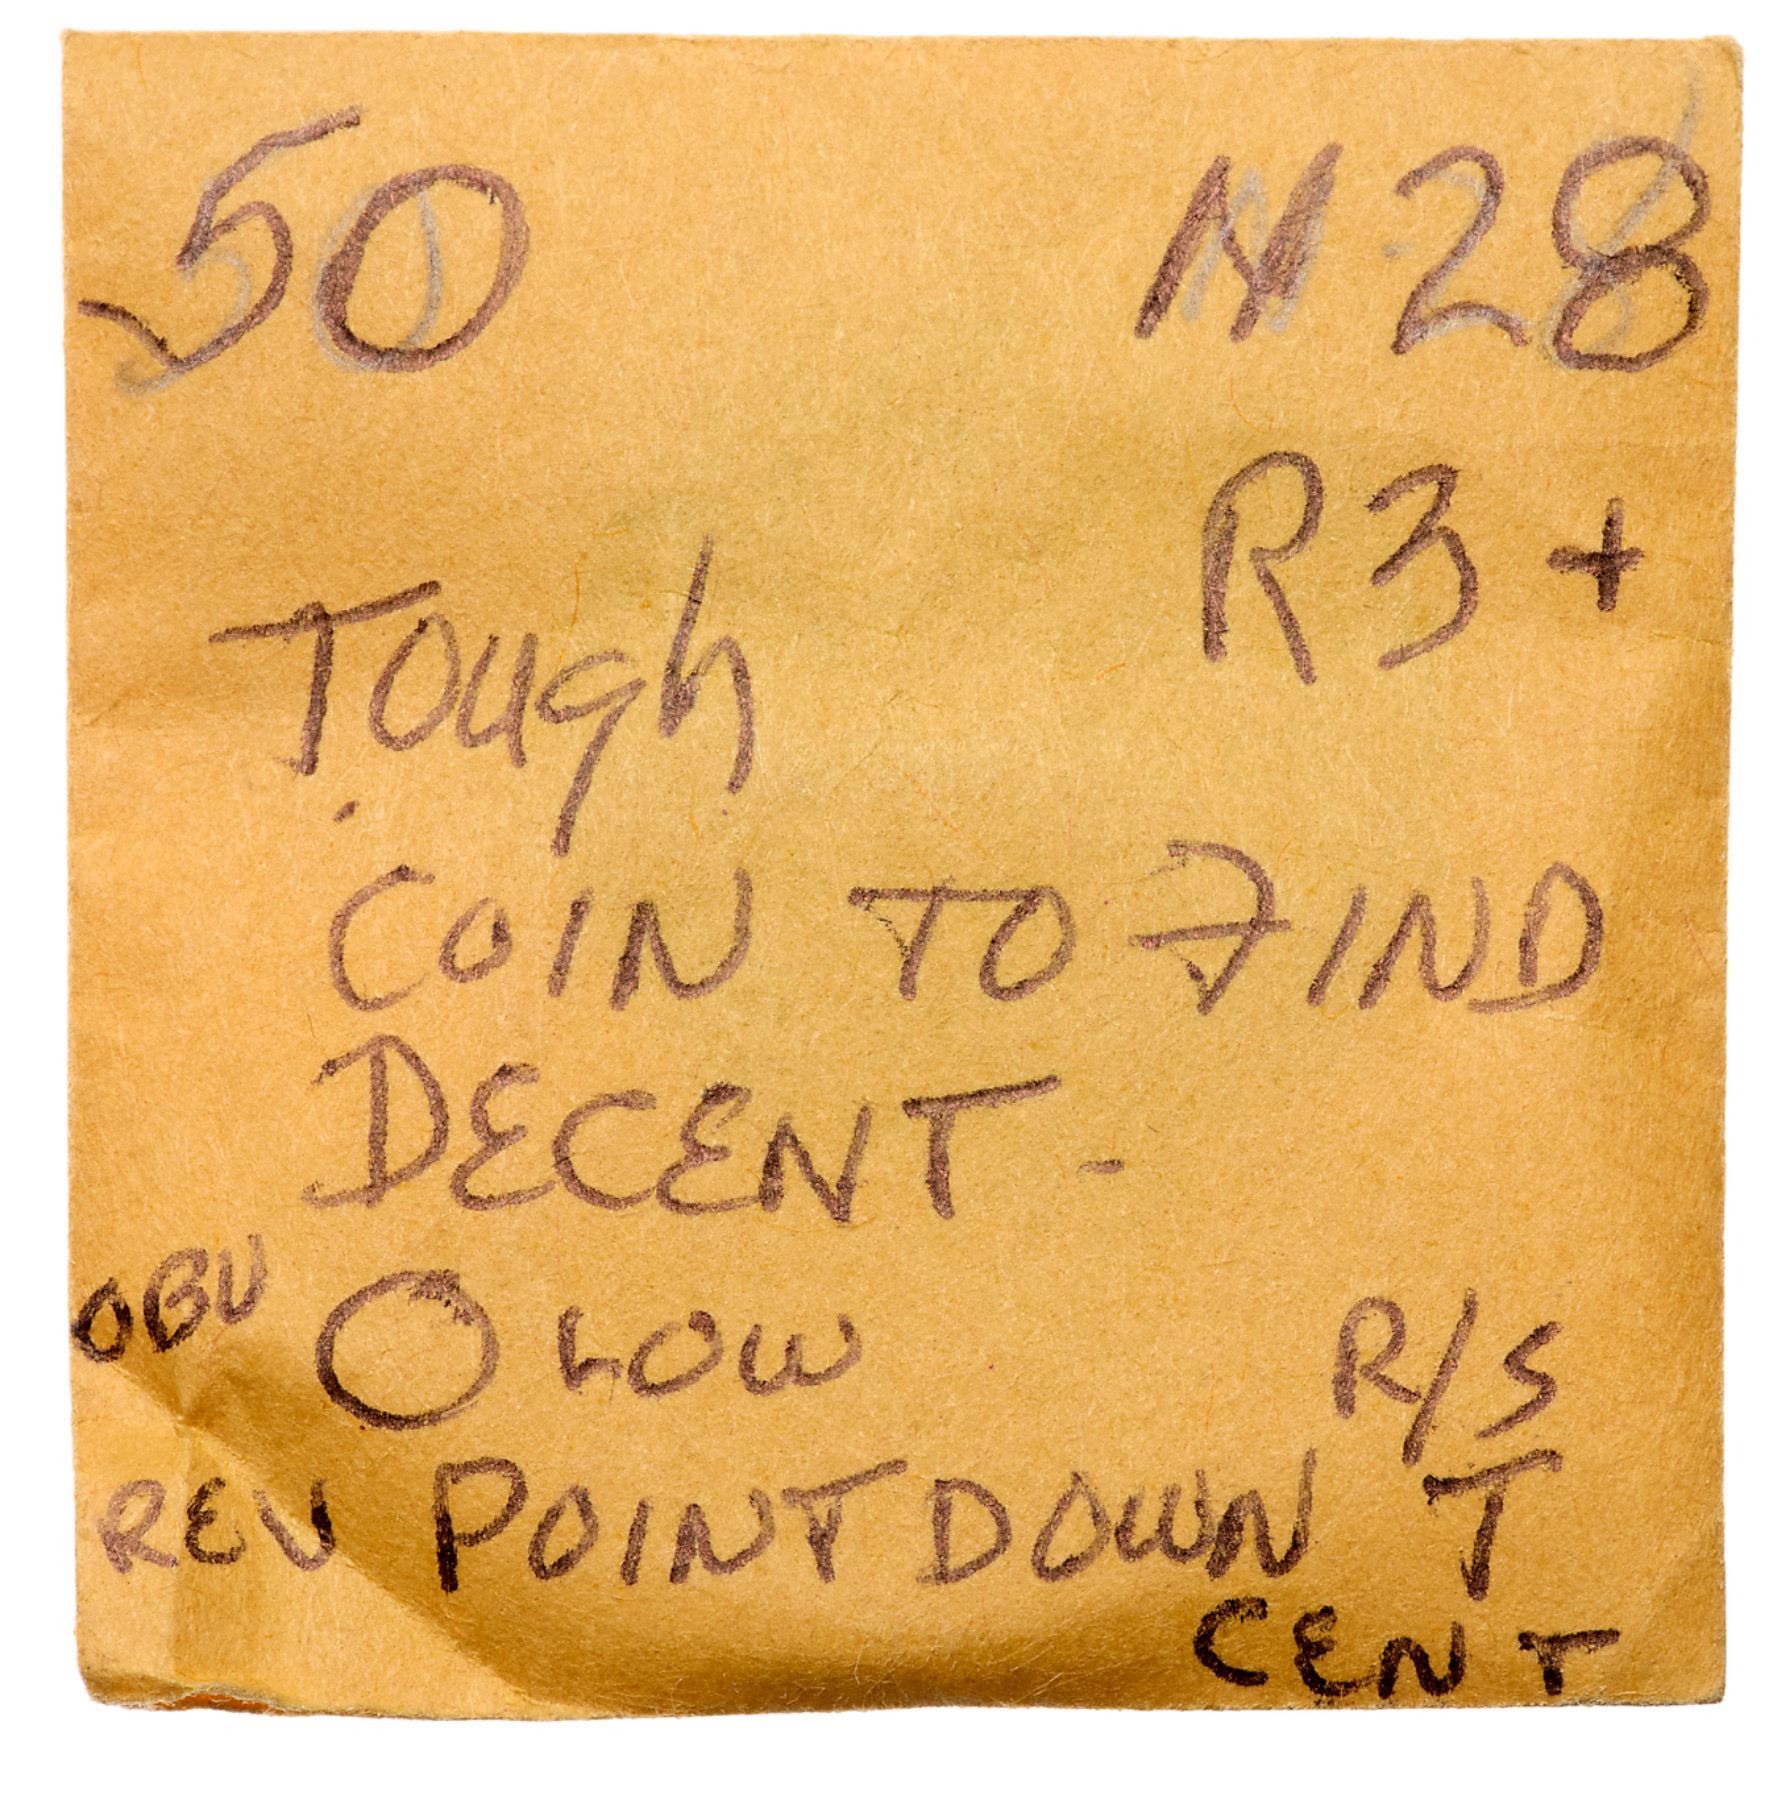 50 N 28
R3+
Tough
COIN TO FIND
DECENT-
OBV O LOW R/S
REV POINT DOWN T
CENT